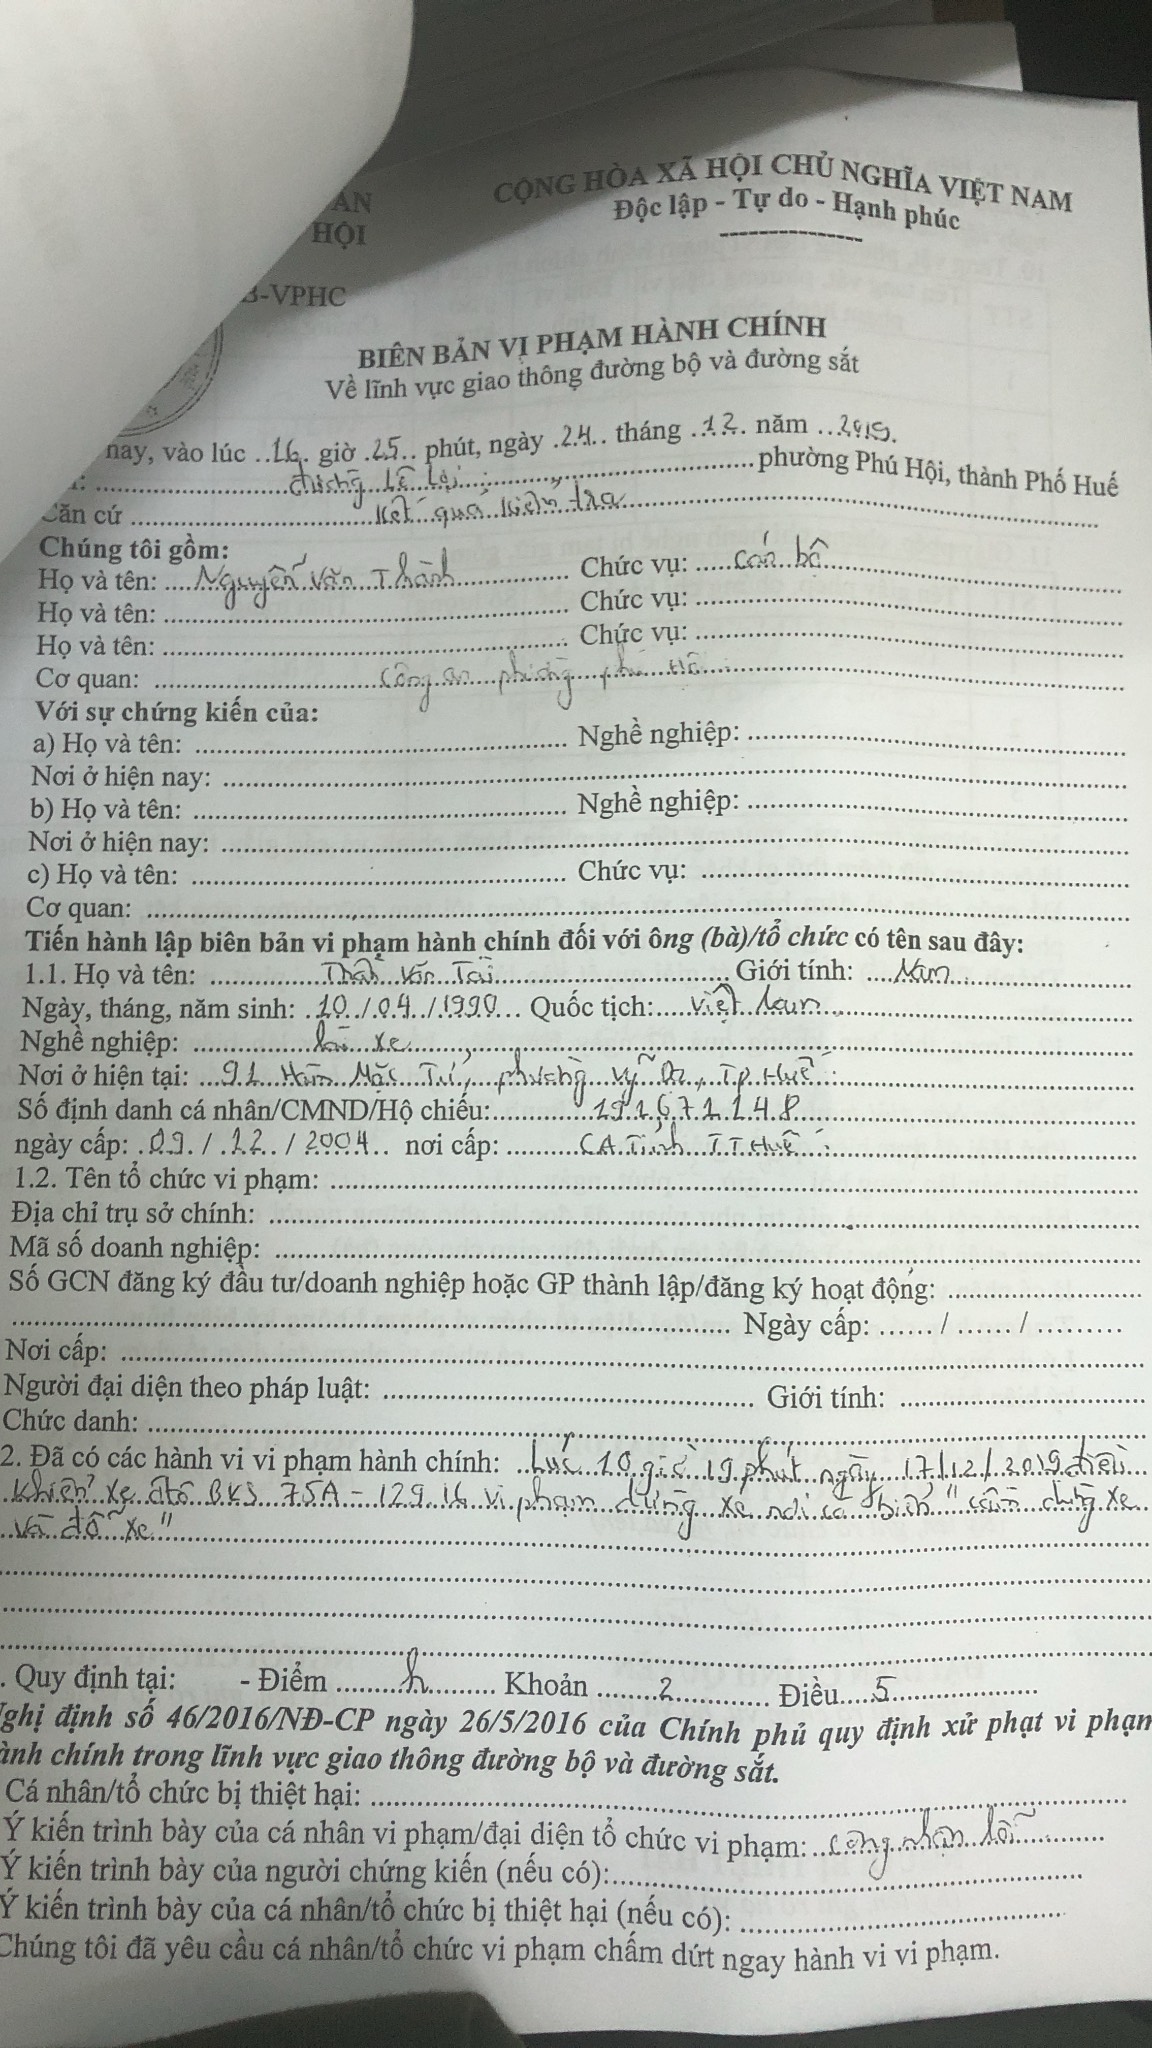 ÂN
HỘI
CỘNG HÒA XÃ HỘI CHỦ NGHĨA VIỆT NAM
Độc lập - Tự do - Hạnh phúc
B-VPHC
BIÊN BẢN VI PHẠM HÀNH CHÍNH
Về lĩnh vực giao thông đường bộ và đường sắt
nay, vào lúc ..16. giờ .25.. phút, ngày .24.. tháng .12. năm ..2019.
đường Lê Lợi phường Phú Hội, thành Phố Huế
Căn cứ Kết quả kiểm tra
Chúng tôi gồm:
Họ và tên: Nguyễn Văn Thành Chức vụ: Cán bộ
Họ và tên: Chức vụ:
Họ và tên: Chức vụ:
Cơ quan: Công an phường Phú Hội
Với sự chứng kiến của:
a) Họ và tên: Nghề nghiệp:
Nơi ở hiện nay:
b) Họ và tên: Nghề nghiệp:
Nơi ở hiện nay:
c) Họ và tên: Chức vụ:
Cơ quan:
Tiến hành lập biên bản vi phạm hành chính đối với ông (bà)/tổ chức có tên sau đây:
1.1. Họ và tên: Văn Tài Giới tính: Nam
Ngày, tháng, năm sinh: 10/04/1990 Quốc tịch: Việt Nam
Nghề nghiệp: lái xe
Nơi ở hiện tại: 91 Hàn Mặc Tử, phường Vỹ Dạ, TP Huế
Số định danh cá nhân/CMND/Hộ chiếu: 191671148
ngày cấp: 09 / 12 / 2004 nơi cấp: CA Tỉnh T.T.Huế
1.2. Tên tổ chức vi phạm:
Địa chỉ trụ sở chính:
Mã số doanh nghiệp:
Số GCN đăng ký đầu tư/doanh nghiệp hoặc GP thành lập/đăng ký hoạt động:
Ngày cấp: ...... / ...... / .........
Nơi cấp:
Người đại diện theo pháp luật: Giới tính:
Chức danh:
2. Đã có các hành vi vi phạm hành chính: Lúc 10 giờ 19 phút ngày 17/12/2019 điều
khiển xe ôtô BKS 75A - 129.16 vi phạm dừng xe nơi có biển "cấm dừng xe
và đỗ xe"
. Quy định tại: - Điểm h Khoản 2 Điều 5
Nghị định số 46/2016/NĐ-CP ngày 26/5/2016 của Chính phủ quy định xử phạt vi phạm
hành chính trong lĩnh vực giao thông đường bộ và đường sắt.
Cá nhân/tổ chức bị thiệt hại:
Ý kiến trình bày của cá nhân vi phạm/đại diện tổ chức vi phạm: công nhận lỗi
Ý kiến trình bày của người chứng kiến (nếu có):
Ý kiến trình bày của cá nhân/tổ chức bị thiệt hại (nếu có):
Chúng tôi đã yêu cầu cá nhân/tổ chức vi phạm chấm dứt ngay hành vi vi phạm.